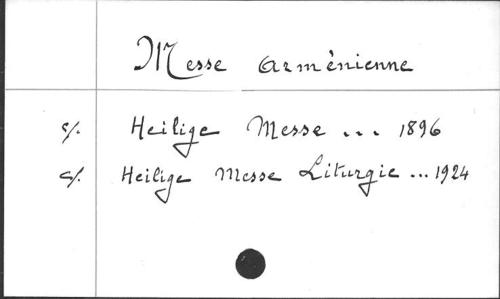 Messe Arménienne
c/. Heilige Messe ... 1896
c/. Heilige Messe Liturgie ... 1924